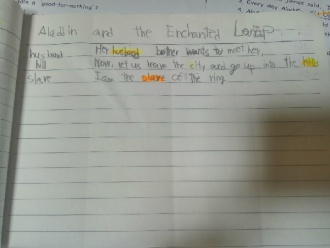 is a good-for-nothing"?
3. Every day Aladdin
Aladdin and the Enchanted Lamp
husband Her husband brother wants to meet her.
hill Now, let us leave the city and go up into the hills
slave I am the slave of the ring